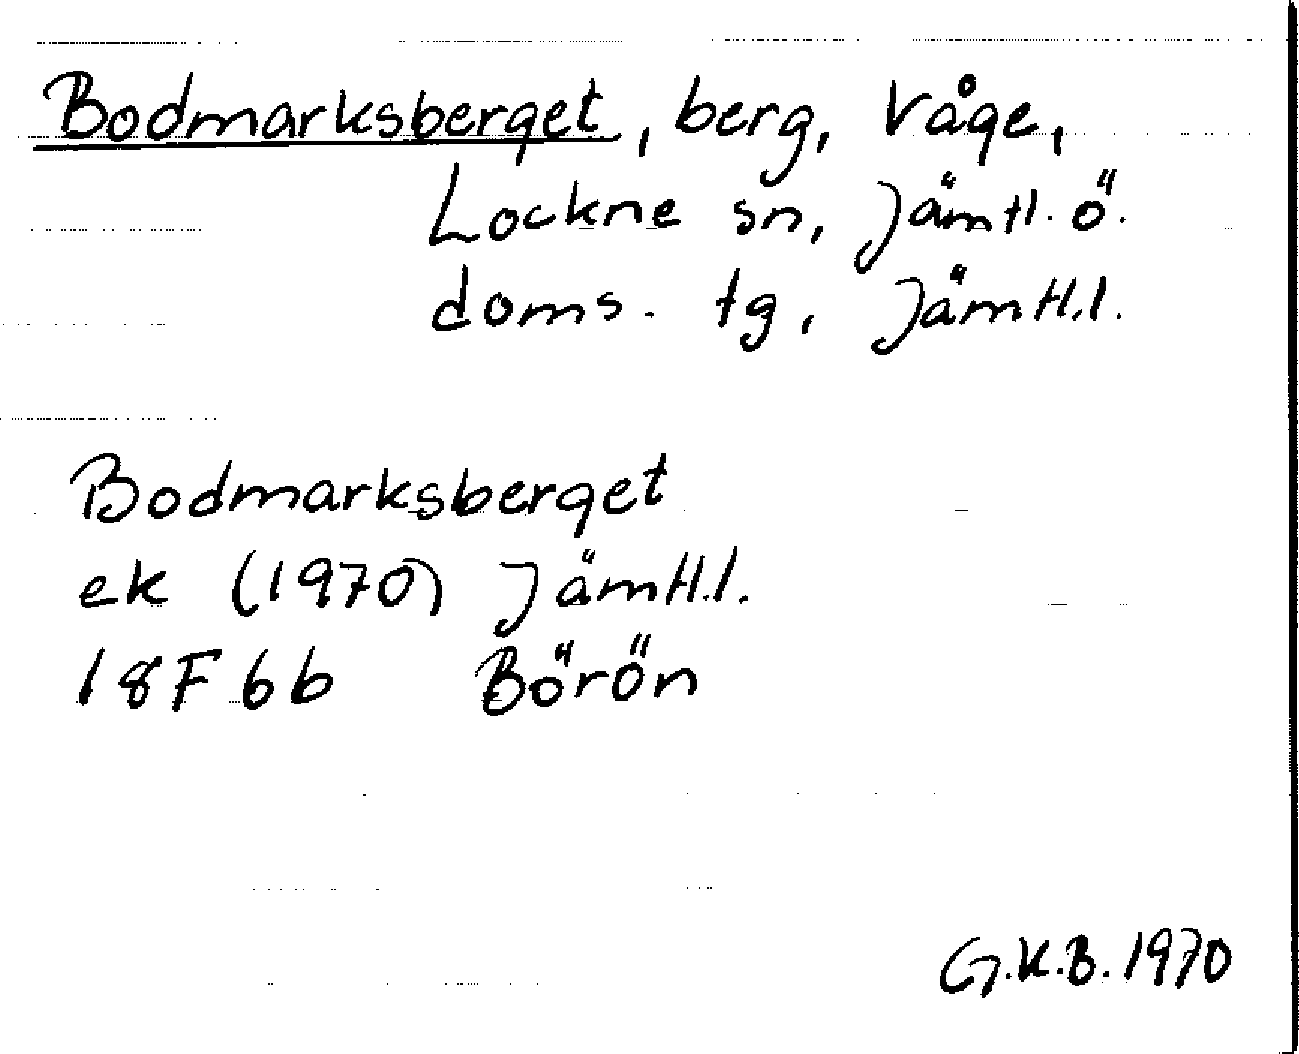 Bodmarksberget, berg, Våge,
Lockne sn, Jämtl. ö.
doms. tg, Jämtl.l.
Bodmarksberget
ek (1970) Jämtl.l.
18F 6b Börön
G.K.B. 1970